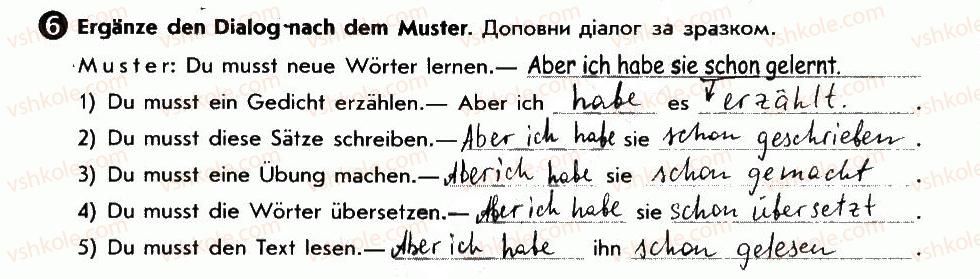 6 Ergänze den Dialog nach dem Muster. Доповни діалог за зразком.
Muster: Du musst neue Wörter lernen.— Aber ich habe sie schon gelernt.
1) Du musst ein Gedicht erzählen.— Aber ich habe es erzählt.
2) Du musst diese Sätze schreiben.— Aber ich habe sie schon geschrieben.
3) Du musst eine Übung machen.— Aber ich habe sie schon gemacht.
4) Du musst die Wörter übersetzen.— Aber ich habe sie schon übersetzt.
5) Du musst den Text lesen.— Aber ich habe ihn schon gelesen.